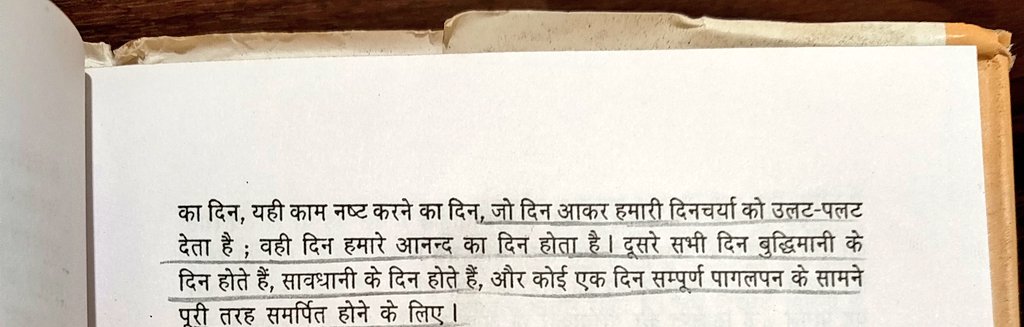 का दिन, यही काम नष्ट करने का दिन, जो दिन आकर हमारी दिनचर्या को उलट-पलट
देता है ; वही दिन हमारे आनन्द का दिन होता है । दूसरे सभी दिन बुद्धिमानी के
दिन होते हैं, सावधानी के दिन होते हैं, और कोई एक दिन सम्पूर्ण पागलपन के सामने
पूरी तरह समर्पित होने के लिए ।